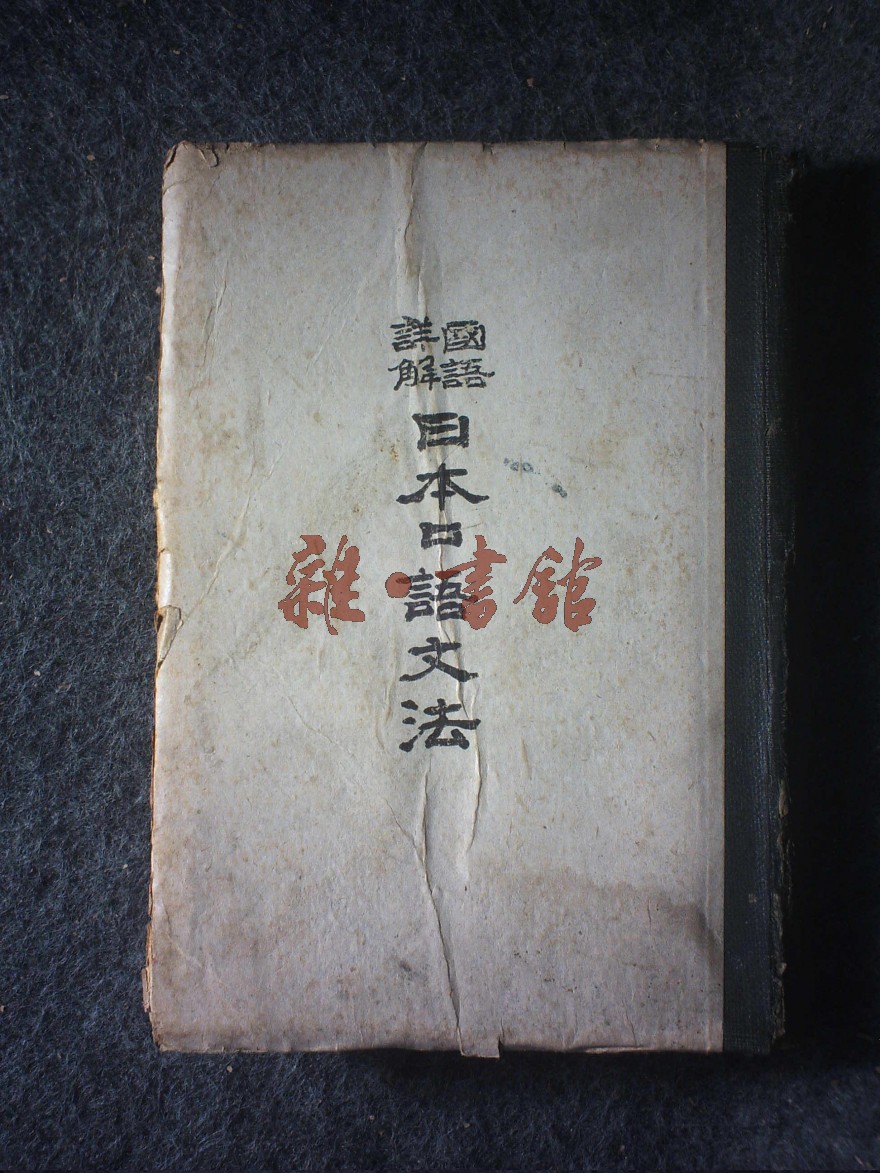 國語
詳解
日本口語文法
雜·書館